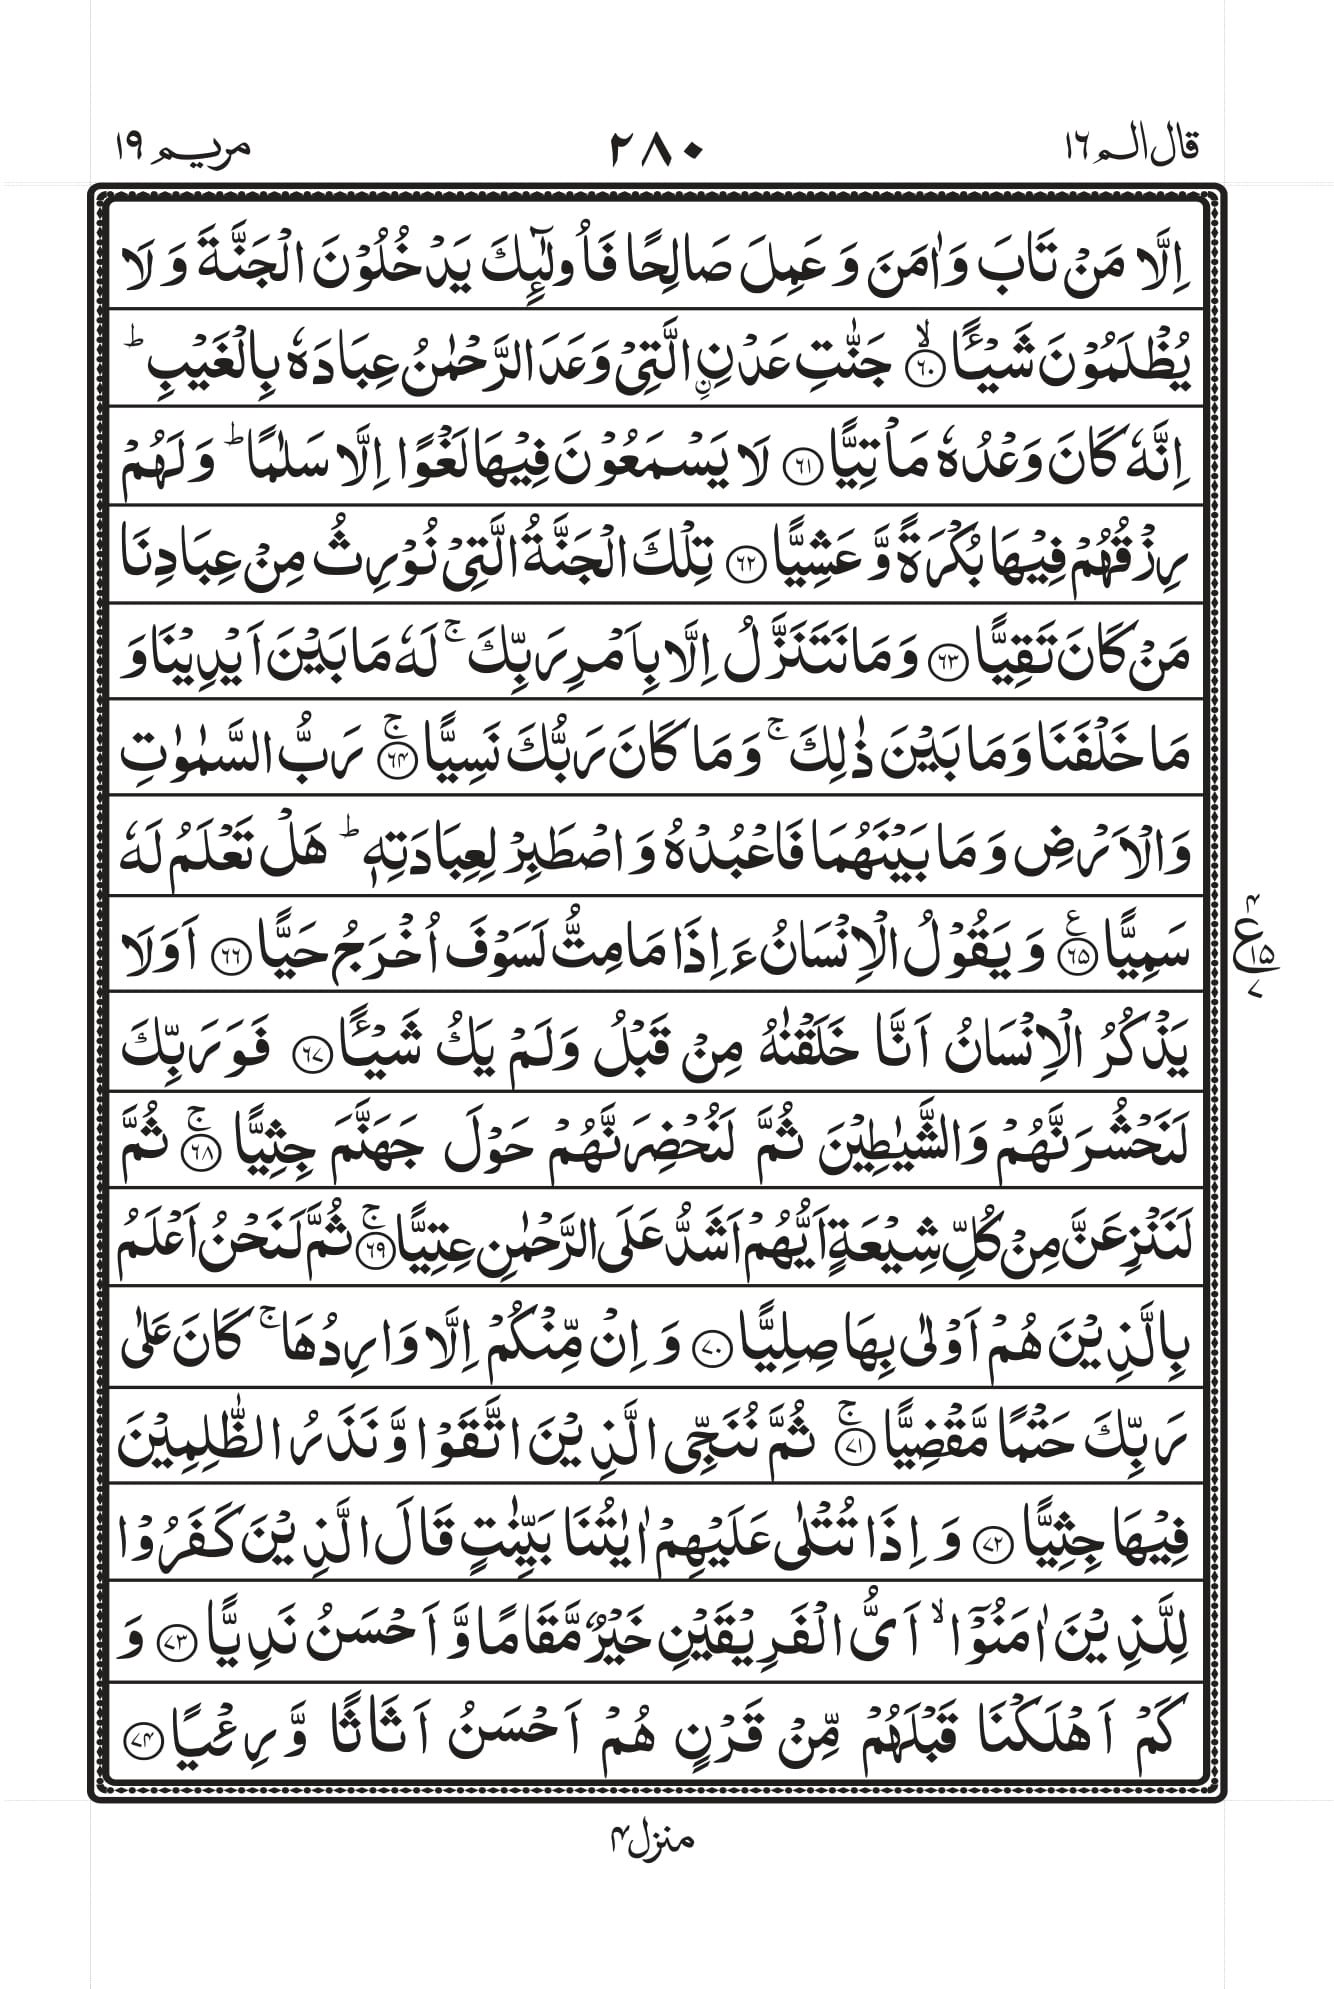 قال الم ۱۶
۲۸۰
مریم ۱۹
اِلَّا مَنْ تَابَ وَاٰمَنَ وَ عَمِلَ صَالِحًا فَاُولٰٓئِكَ یَدْخُلُوْنَ الْجَنَّةَ وَ لَا
یُظْلَمُوْنَ شَیْــٴًـاۙ ﴿۶۰﴾ جَنّٰتِ عَدْنِ ِ۟الَّتِیْ وَعَدَ الرَّحْمٰنُ عِبَادَهٗ بِالْغَیْبِ ؕ
اِنَّهٗ كَانَ وَعْدُهٗ مَاْتِیًّا ﴿۶۱﴾ لَا یَسْمَعُوْنَ فِیْهَا لَغْوًا اِلَّا سَلٰمًا ؕ وَ لَهُمْ
رِزْقُهُمْ فِیْهَا بُكْرَةً وَّ عَشِیًّا ﴿۶۲﴾ تِلْكَ الْجَنَّةُ الَّتِیْ نُوْرِثُ مِنْ عِبَادِنَا
مَنْ كَانَ تَقِیًّا ﴿۶۳﴾ وَ مَا نَتَنَزَّلُ اِلَّا بِاَمْرِ رَبِّكَ ۚ لَهٗ مَا بَیْنَ اَیْدِیْنَا وَ
مَا خَلْفَنَا وَ مَا بَیْنَ ذٰلِكَ ۚ وَ مَا كَانَ رَبُّكَ نَسِیًّاۚ ﴿۶۴﴾ رَبُّ السَّمٰوٰتِ
وَالْاَرْضِ وَ مَا بَیْنَهُمَا فَاعْبُدْهُ وَ اصْطَبِرْ لِعِبَادَتِهٖ ؕ هَلْ تَعْلَمُ لَهٗ
سَمِیًّا ࣖ ﴿۶۵﴾ وَ یَقُوْلُ الْاِنْسَانُ ءَ اِذَا مَا مِتُّ لَسَوْفَ اُخْرَجُ حَیًّا ﴿۶۶﴾ اَوَلَا
۴
ع ۱۵
۷
یَذْكُرُ الْاِنْسَانُ اَنَّا خَلَقْنٰهُ مِنْ قَبْلُ وَلَمْ یَكُ شَیْــٴًـا ﴿۶۷﴾ فَوَرَبِّكَ
لَنَحْشُرَنَّهُمْ وَالشَّیٰطِیْنَ ثُمَّ لَنُحْضِرَنَّهُمْ حَوْلَ جَهَنَّمَ جِثِیًّاۚ ﴿۶۸﴾ ثُمَّ
لَنَنْزِعَنَّ مِنْ كُلِّ شِیْعَةٍ اَیُّهُمْ اَشَدُّ عَلَی الرَّحْمٰنِ عِتِیًّاۚ ﴿۶۹﴾ ثُمَّ لَنَحْنُ اَعْلَمُ
بِالَّذِیْنَ هُمْ اَوْلٰی بِهَا صِلِیًّا ﴿۷۰﴾ وَ اِنْ مِّنْكُمْ اِلَّا وَارِدُهَا ۚ كَانَ عَلٰی
رَبِّكَ حَتْمًا مَّقْضِیًّاۚ ﴿۷۱﴾ ثُمَّ نُنَجِّی الَّذِیْنَ اتَّقَوْا وَّ نَذَرُ الظّٰلِمِیْنَ
فِیْهَا جِثِیًّا ﴿۷۲﴾ وَ اِذَا تُتْلٰی عَلَیْهِمْ اٰیٰتُنَا بَیِّنٰتٍ قَالَ الَّذِیْنَ كَفَرُوْا
لِلَّذِیْنَ اٰمَنُوْۤا ۙ اَیُّ الْفَرِیْقَیْنِ خَیْرٌ مَّقَامًا وَّ اَحْسَنُ نَدِیًّا ﴿۷۳﴾ وَ
كَمْ اَهْلَكْنَا قَبْلَهُمْ مِّنْ قَرْنٍ هُمْ اَحْسَنُ اَثَاثًا وَّ رِءْیًا ﴿۷۴﴾
منزل ۴